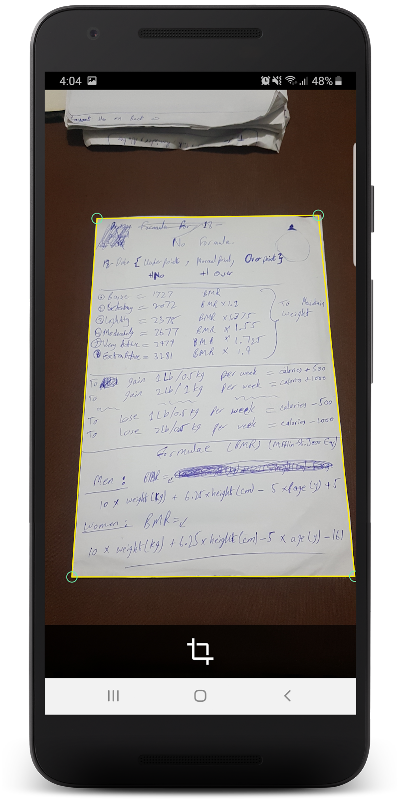 4:04 48%
Formula for
No Formula
{ Under points, Normal point, Over point }
+No +1 over
= 1727 BMR
Sedentary = 2072 BMR x 1.2
Lightly = 2375 BMR x 1.375
Moderately = 2677 BMR x 1.55
Very Active = BMR x 1.725
Extra Active = 3281 BMR x 1.9
To Maintain
weight
To gain 1 Lb/0.5 kg per week = calories + 500
To gain 2 Lb/1 kg per week = calories + 1000
To Lose 1 Lb/0.5 kg per week = calories - 500
To Lose 2 Lb/ kg per week = calories - 1000
Formulae (BMR)
Men : BMR =
10 x weight(kg) + 6.25 x height(cm) - 5 x age(y) + 5
Women : BMR =
10 x weight(kg) + 6.25 x height(cm) - 5 x age(y) - 161